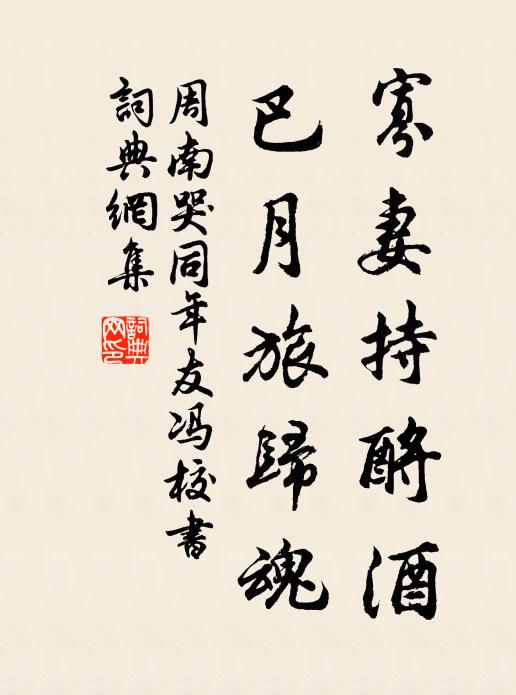 寡妻持酹酒
巴月旅歸魂
周南哭同年友冯校書
詞典網集
詞典網印